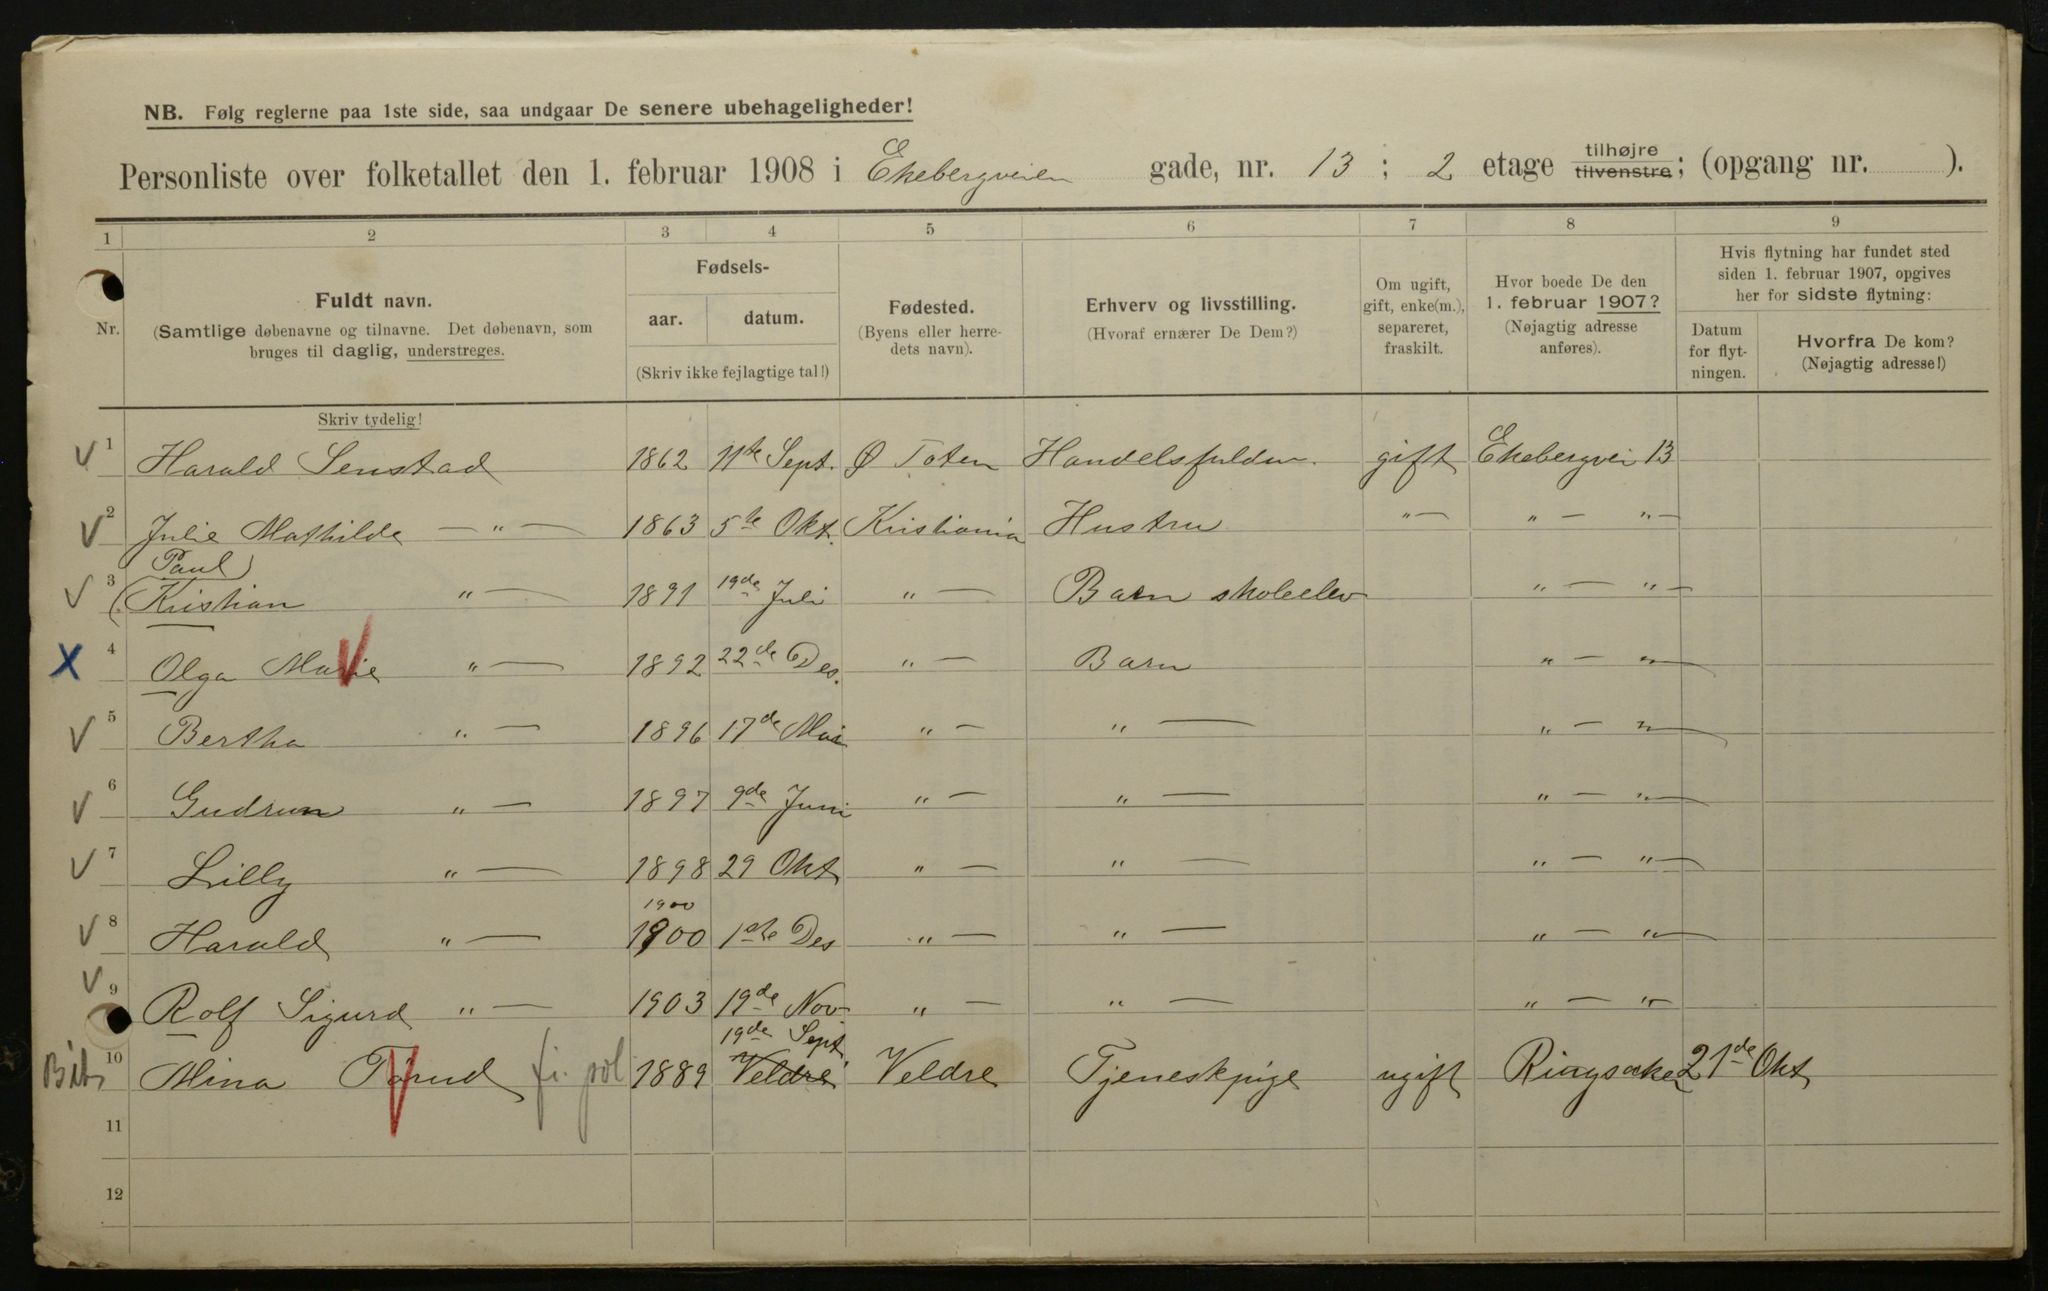 NB. Følg reglerne paa 1ste side, saa undgaar De senere ubehageligheder!
Personliste over folketallet den 1. februar 1908 i Ekebergveien gade, nr. 13 ; 2 etage tilhøjre tilvenstre; (opgang nr. ).
1 2 3 4 5 6 7 8 9
Nr.
Fuldt navn.
(Samtlige døbenavne og tilnavne. Det døbenavn, som
bruges til daglig, understreges.
Fødsels-
aar. datum.
(Skriv ikke fejlagtige tal!)
Fødested.
(Byens eller herre-
dets navn).
Erhverv og livsstilling.
(Hvoraf ernærer De Dem?)
Om ugift,
gift, enke(m.),
separeret,
fraskilt.
Hvor boede De den
1. februar 1907?
(Nøjagtig adresse
anføres).
Hvis flytning har fundet sted
siden 1. februar 1907, opgives
her for sidste flytning:
Datum
for flyt-
ningen.
Hvorfra De kom?
(Nøjagtig adresse!)
Skriv tydelig!
1 Harald Senstad 1862 11te Sept. Ø Toten gift Ekebergvei 13
2 Julie Mathilde — " — 1863 5te Okt. Kristiania Hustru " — " — " —
Paul
3 (Kristian " — 1891 19de Juli " — Barn skoleelev " — " —
4 Olga Marie " — 1892 22de Des. " — Barn " — " —
5 Bertha " — 1896 17de Mai " — " — " — " —
6 Gudrun " — 1897 9de Juni " — " — " — " —
7 Lilly " — 1898 29 Okt " — " — " — " —
1900
8 Harald " — 1900 1ste Des " — " — " — " —
9 Rolf Sigurd " — 1903 19de Nov. " — " — " — "
19de Sept
10 Mina 1889 Veldre Veldre Tjeneskpige ugift Ringsaker 21de Okt
11
12